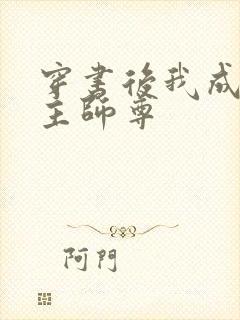 穿書後我成
主師尊
阿門